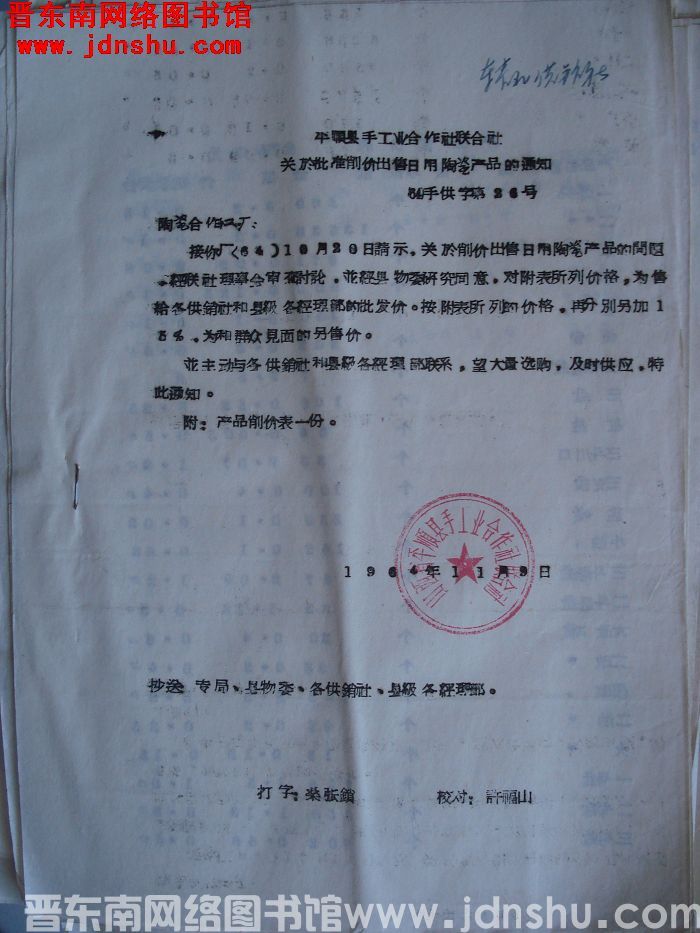 晋东南网络图书馆
www.jdnshu.com
平順县手工业合作社联合社
关於批准削价出售日用陶瓷产品的通知
64手供字第26号
陶瓷合作工厂：
接你厂（64）10月20日請示，关於削价出售日用陶瓷产品的問題
，經联社理事会审查討论，並經县物委研究同意，对附表所列价格，为售
給各供銷社和县級各經理部的批发价。按附表所列的价格，再分別另加1
5%，为和群众見面的另售价。
並主动与各供銷社和县級各經理部联系，望大量选购，及时供应，特
此通知。
附：产品削价表一份。
平順县手工业合作社联合社
1964年11月9日
抄送 专局、县物委、各供銷社、县級各經理部。
打字：栄张鎖 校对：許福山
晋东南网络图书馆www.jdnshu.com